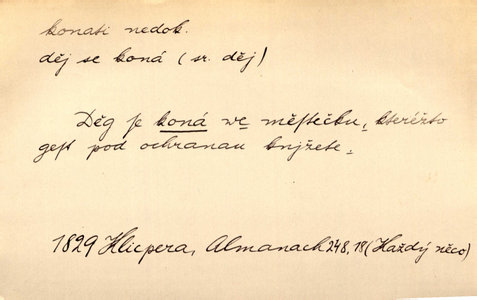 konati nedok.
děj se koná (sr. děj)
Děg se koná we měſtečku, kteréžto
geſt pod ochranau knjžete.
1829 Klicpera, Almanach 248, 18 (Každý něco)